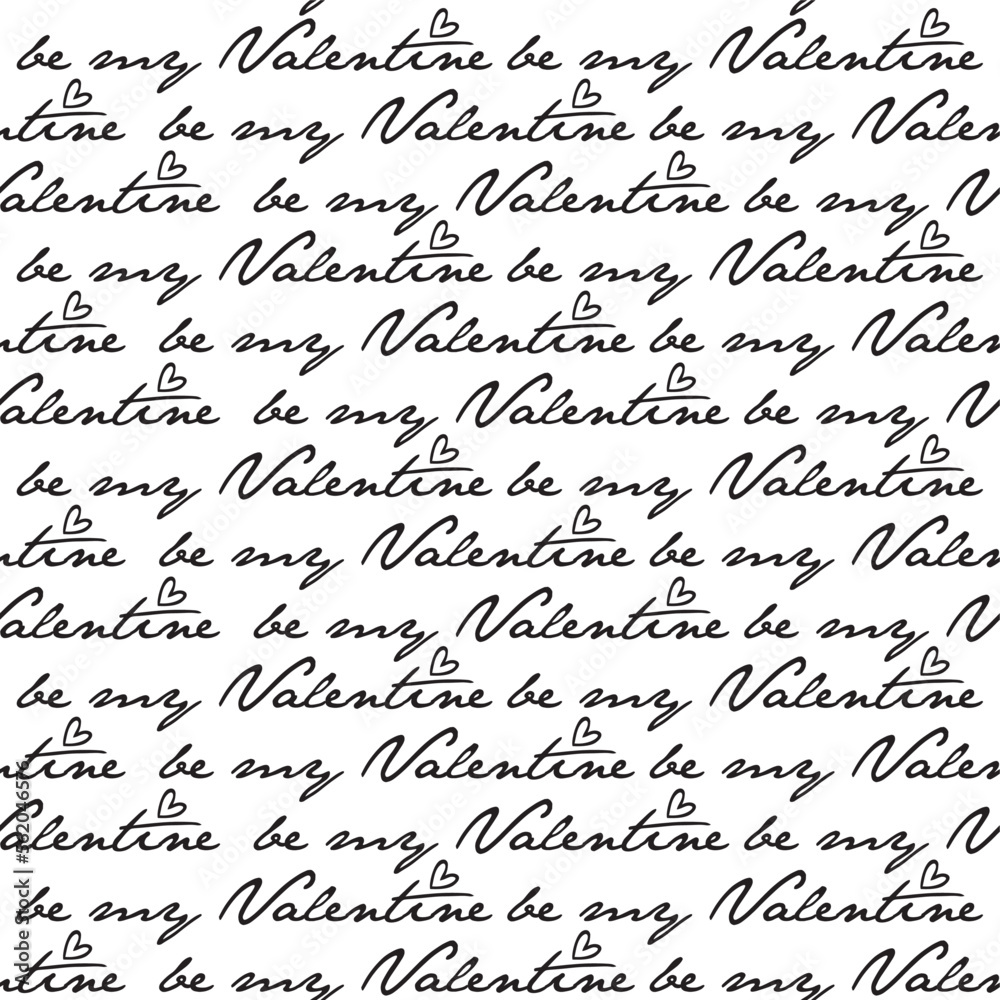 be my Valentine be my Valentine
ntine be my Valentine be my Valen
Valentine be my Valentine be my V
be my Valentine be my Valentine
ntine be my Valentine be my Valen
Valentine be my Valentine be my V
be my Valentine be my Valentine
ntine be my Valentine be my Valen
Valentine be my Valentine be my V
be my Valentine be my Valentine
ntine be my Valentine be my Valen
Valentine be my Valentine be my V
be my Valentine be my Valentine
ntine be my Valentine be my Valen
Adobe Stock | #562046576